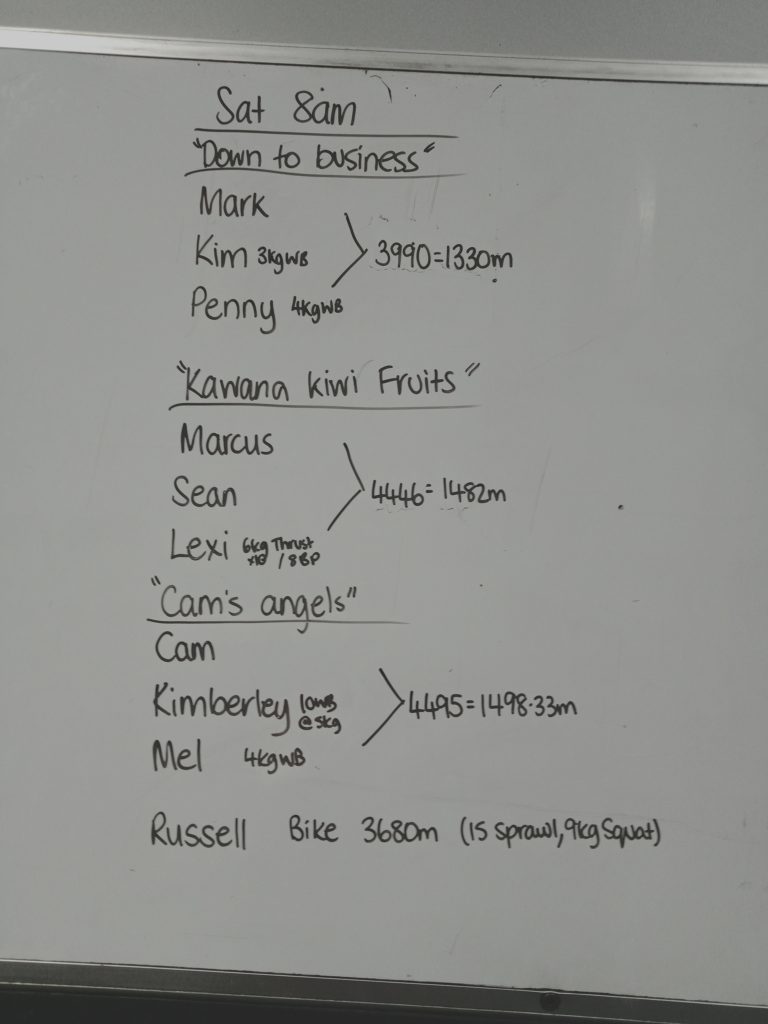 Sat 8am
"Down to business"
Mark
Kim 3kgWB
Penny 4kgWB
3990=1330m
"Kawana kiwi Fruits"
Marcus
Sean
Lexi 6kg Thrust
x10 / 8BP
4446= 1482m
"Cam's angels"
Cam
Kimberley 10WB
@5kg
Mel 4kgWB
4495=1498.33m
Russell Bike 3680m (15 Sprawl, 9kg Squat)